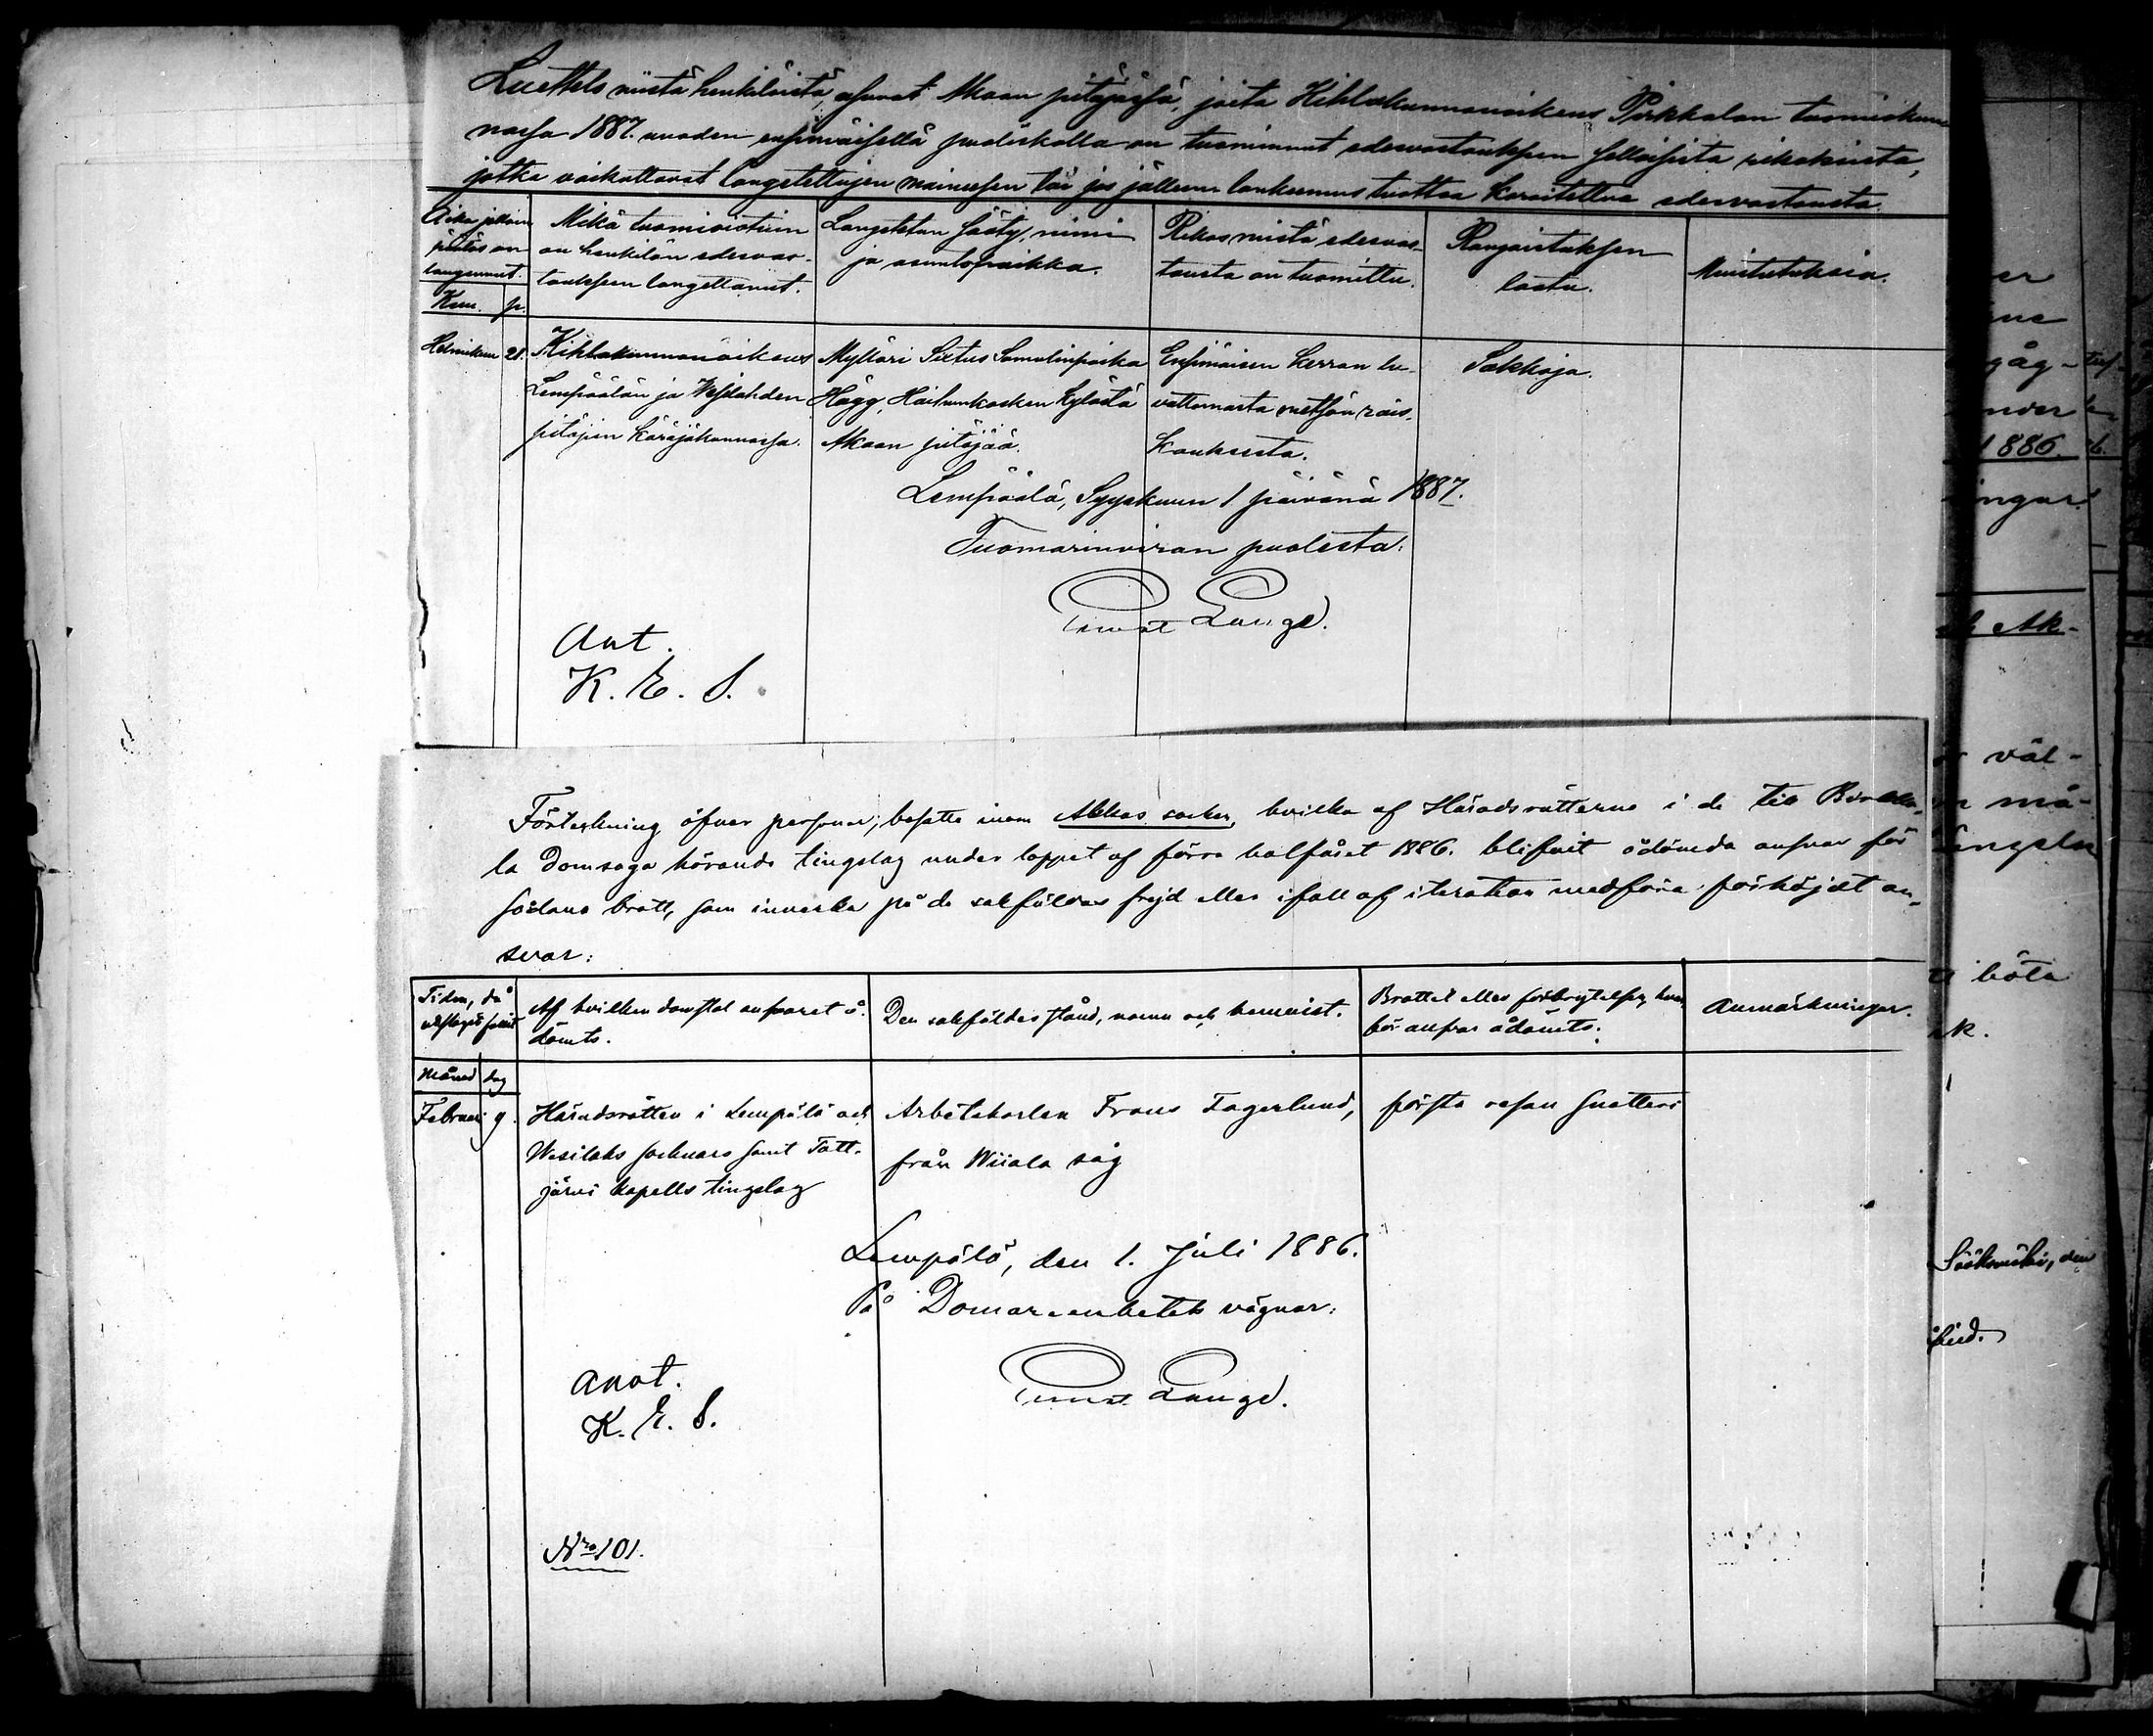 Luettelo niistä henkilöistä, asuvat Akaan pitäjässä, joita Kihlakunnanoikeus Pirkkalan tuomiokun-
nassa 1887. vuoden ensimäisellä puoliskolla on tuominnut edesvastaukseen sellaisista rikoksista,
jotka vaikuttavat langetettujen maineesen tai jos jälleen lankeemus tuottaa koroitettua edesvastausta.
Aika jolloin
päätös on
langennut.
Kuu. p.
Mikä tuomioistuin
on henkilön edesvas-
taukseen langettanut.
Langetetun sääty, nimi
ja asuntopaikka.
Rikos mistä edesvas-
tausta on tuomittu.
Rangaistuksen
laatu.
Muistutuksia.
Helmikuu 21. Kihlakunnanoikeus Mylläri Sixtus Samulinpoika Ensimäisen kerran lu- Sakkoja.
Lempäälän ja Wesilahden Hägg, Haihunkosken kylästä vattomasta metsän rais-
pitäjien käräjäkunnassa. Akaan pitäjää. kauksesta.
Lempäälä, Syyskuun 1 päivänä 1887.
Tuomarinviran puolesta:
Ernst Lange.
Ant.
K. E. S.
Förteckning öfver personer, bosatte inom Akkas socken, hvilka af Häradsrätterne i de till Birkka-
la Domsaga hörande tingslag under loppet af förra halfåret 1886. blifvit ådömda ansvar för
sådana brott, som inverka på de sakfäldas frejd eller ifall af iteration medföra förhöjdt an-
svar:
Tiden, då
utslaget fallit
Månad dag
Af hvilken domstol ansvaret å-
dömts.
Den sakfäldes stånd, namn och hemvist.
Brottet eller förbrytelsen, hvar-
för ansvar ådömts.
Anmärkningar.
Februari 9. Häradsrätten i Lempälä och Arbetskarlen Frans Fagerlund, första resan snatteri
Wesilaks socknars samt Tott- från Wiiala såg
järvi kapells tingslag
Lempälä, den 1. Juli 1886.
På Domareembetets vägnar:
Ernst Lange.
Anot.
K. E. S.
Nro 101.
gåg-
1886.
ingar.
Ak-
väl-
må-
böta
Sääksmäki, den